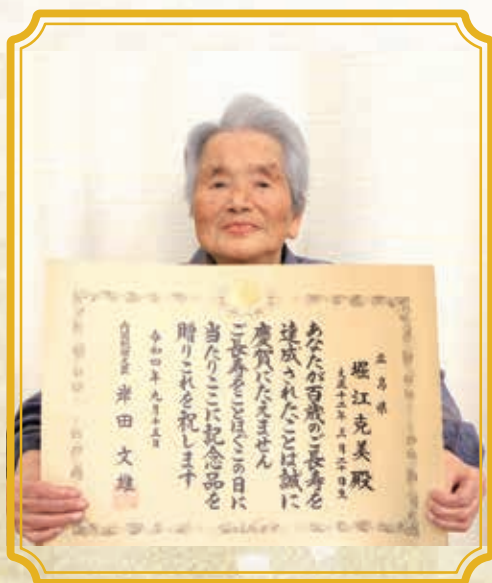 広島県
堀江克美殿
大正十二年三月二十日生
あなたが百歳のご長寿を
達成されたことは誠に
慶賀にたえません
ご長寿をことほぐこの日に
当たりここに記念品を
贈りこれを祝します
令和四年九月十五日
内閣総理大臣 岸田文雄